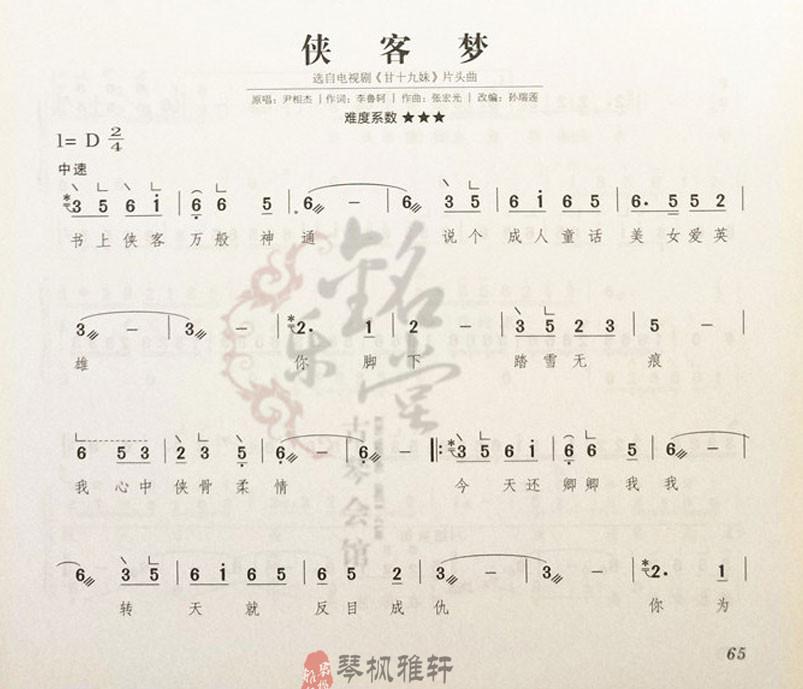 侠客梦
选自电视剧《甘十九妹》片头曲
原唱：尹相杰 | 作词：李鲁轲 | 作曲：张宏光 | 改编：孙瑞莲
难度系数 ★★★
1= D 2/4
中速
3 5 6 i | 6 6 5 | 6 - | 6 3 5 | 6 i 6 5 | 6. 5 5 2 |
书上侠客万般神通 说个成人童话美女爱英
3 - | 3 - | 2. 1 | 2 - | 3 5 2 3 | 5 - |
雄 你脚下 踏雪无痕
6 5 3 | 2 3 5 | 6 - | 6 - |: 3 5 6 i | 6 6 6 |
我心中侠骨柔情 今天还卿卿我我
6 3 5 | 6 i 6 5 | 6 5 2 | 3 - | 3 - | 2. 1 |
转天就反目成仇 你为
65
铭乐堂
古琴会馆
琴枫雅轩